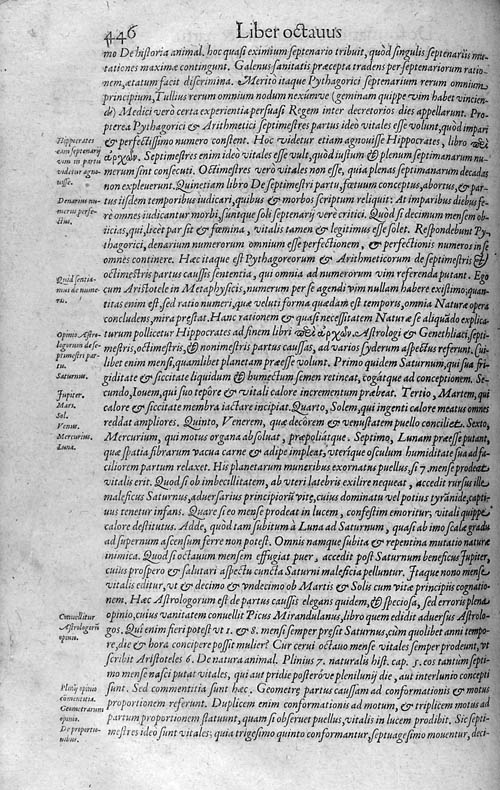 446
Liber octauus
mo De historia animal. hoc quasi eximium septenario tribuit, quòd singulis septenariis mu-
tationes maximæ contingunt. Galenus sanitatis præcepta tradens per septenariorum ratio-
nem, ætatum facit discrimina. Meritò itaque Pythagorici septenarium rerum omnium
principium, Tullius rerum omnium nodum nexúmve (geminam quippe vim habet vincien-
di) Medici verò certa experientia persuasi Regem inter decretorios dies appellarunt. Pro-
pterea Pythagorici & Arithmetici septimestres partus ideò vitales esse volunt, quòd impari
& perfectissimo numero constent. Hoc videtur etiam agnouisse Hippocrates, libro περὶ
ἀρχῶν. Septimestres enim ideo vitales esse vult, quòd iustum & plenum septimanarum nu-
merum sint consecuti. Octimestres verò vitales non esse, quia plenas septimanarum decadas
non expleuerunt. Quinetiam libro De septimestri partu, fœtuum conceptus, abortus, & par-
tus iisdem temporibus iudicari, quibus & morbos scriptum reliquit: At imparibus diebus fe-
rè omnes iudicantur morbi, suntque soli septenarij verè critici. Quòd si decimum mensem ob-
iicias, qui, licèt par sit & fœmina, vitalis tamen & legitimus esse solet. Respondebunt Py-
thagorici, denarium numerorum omnium esse perfectionem, & perfectionis numeros in se
omnes continere. Hæc itaque est Pythagoreorum & Arithmeticorum de septimestris &
octimestris partus caussis sententia, qui omnia ad numerorum vim referenda putant. Ego
cum Aristotele in Metaphysicis, numerum per se agendi vim nullam habere existimo; quan-
titas enim est, sed ratio numeri, quæ veluti forma quædam est temporis, omnia Naturæ opera
concludens, mira præstat. Hanc rationem & quasi necessitatem Naturæ se aliquãdo explica-
turum pollicetur Hippocrates ad finem libri περὶ ἀρχῶν. Astrologi & Genethliaci, septi-
mestris, octimestris, & nonimestris partus caussas, ad varios syderum aspectus referunt. Cui-
libet enim mensi, quamlibet planetam præesse volunt. Primo quidem Saturnum, qui sua fri-
giditate & siccitate liquidum & humectum semen retineat, cogátque ad conceptionem. Se-
cundo, Iouem, qui suo tepore & vitali calore incrementum præbeat. Tertio, Martem, qui
calore & siccitate membra iactare incipiat. Quarto, Solem, qui ingenti calore meatus omnes
reddat ampliores. Quinto, Venerem, quæ decorem & venustatem puello conciliet. Sexto,
Mercurium, qui motus organa absoluat, præpoliátque. Septimo, Lunam præesse putant,
quæ spatia fibrarum vacua carne & adipe impleat, vterique osculum humiditate sua ad fa-
ciliorem partum relaxet. His planetarum muneribus exornatus puellus, si 7. mense prodeat
vitalis erit. Quod si ob imbecillitatem, ab vteri latebris exilire nequeat, accedit rursus ille
maleficus Saturnus, aduersarius principiorũ vitę, cuius dominatu vel potius tyrãnide, capti-
uus tenetur infans. Quare si eo mense prodeat in lucem, confestim emoritur, vitali quippe
calore destitutus. Adde, quòd tam subitum à Luna ad Saturnum, quasi ab imo scalæ gradu
ad supernum ascensum ferre non potest. Omnis namque subita & repentina mutatio naturæ
inimica. Quod si octauum mensem effugiat puer, accedit post Saturnum beneficus Iupiter,
cuius prospero & salutari aspectu cuncta Saturni maleficia pelluntur. Itaque nono mense
vitalis editur, vt & decimo & vndecimo ob Martis & Solis cum vitæ principiis cognatio-
nem. Hæc Astrologorum est de partus caussis elegans quidem, & speciosa, sed erroris plena
opinio, cuius vanitatem conuellit Picus Mirandulanus, libro quem edidit aduersus Astrolo-
gos. Qui enim fieri potest vt 1. & 8. mensi semper præsit Saturnus, cùm quolibet anni tempo-
re, die & hora concipere possit mulier? Cur cerui octauo mense vitales semper prodeunt, vt
scribit Aristoteles 6. De natura animal. Plinius 7. naturalis hist. cap. 5. eos tantùm septi-
mo mense nasci putat vitales, qui aut pridie posteróve plenilunij die, aut interlunio concepti
sunt. Sed commentitia sunt hæc. Geometræ partus caussam ad conformationis & motus
proportionem referunt. Duplicem enim conformationis ad motum, & triplicem motus ad
partum proportionem statuunt, quam si obseruet puellus, vitalis in lucem prodibit. Sic septi-
mestres ideò sunt vitales: quia trigesimo quinto conformantur, septuagesimo mouentur, duci-
Hippocrates
eam septenarij
vim in partu
videtur agno-
uisse.
Denarius nu-
merus perfe-
ctus.
Quid sentia-
mus de nume-
ro.
Opinio Astro-
logorum de se-
ptimestri par-
tu.
Saturnus.
Iupiter.
Mars.
Sol.
Venus.
Mercurius.
Luna.
Conuellitur
Astrologorũ
opinio.
Plinij opinio
commentitia.
Geometrarum
opinio.
De proportio-
nibus.